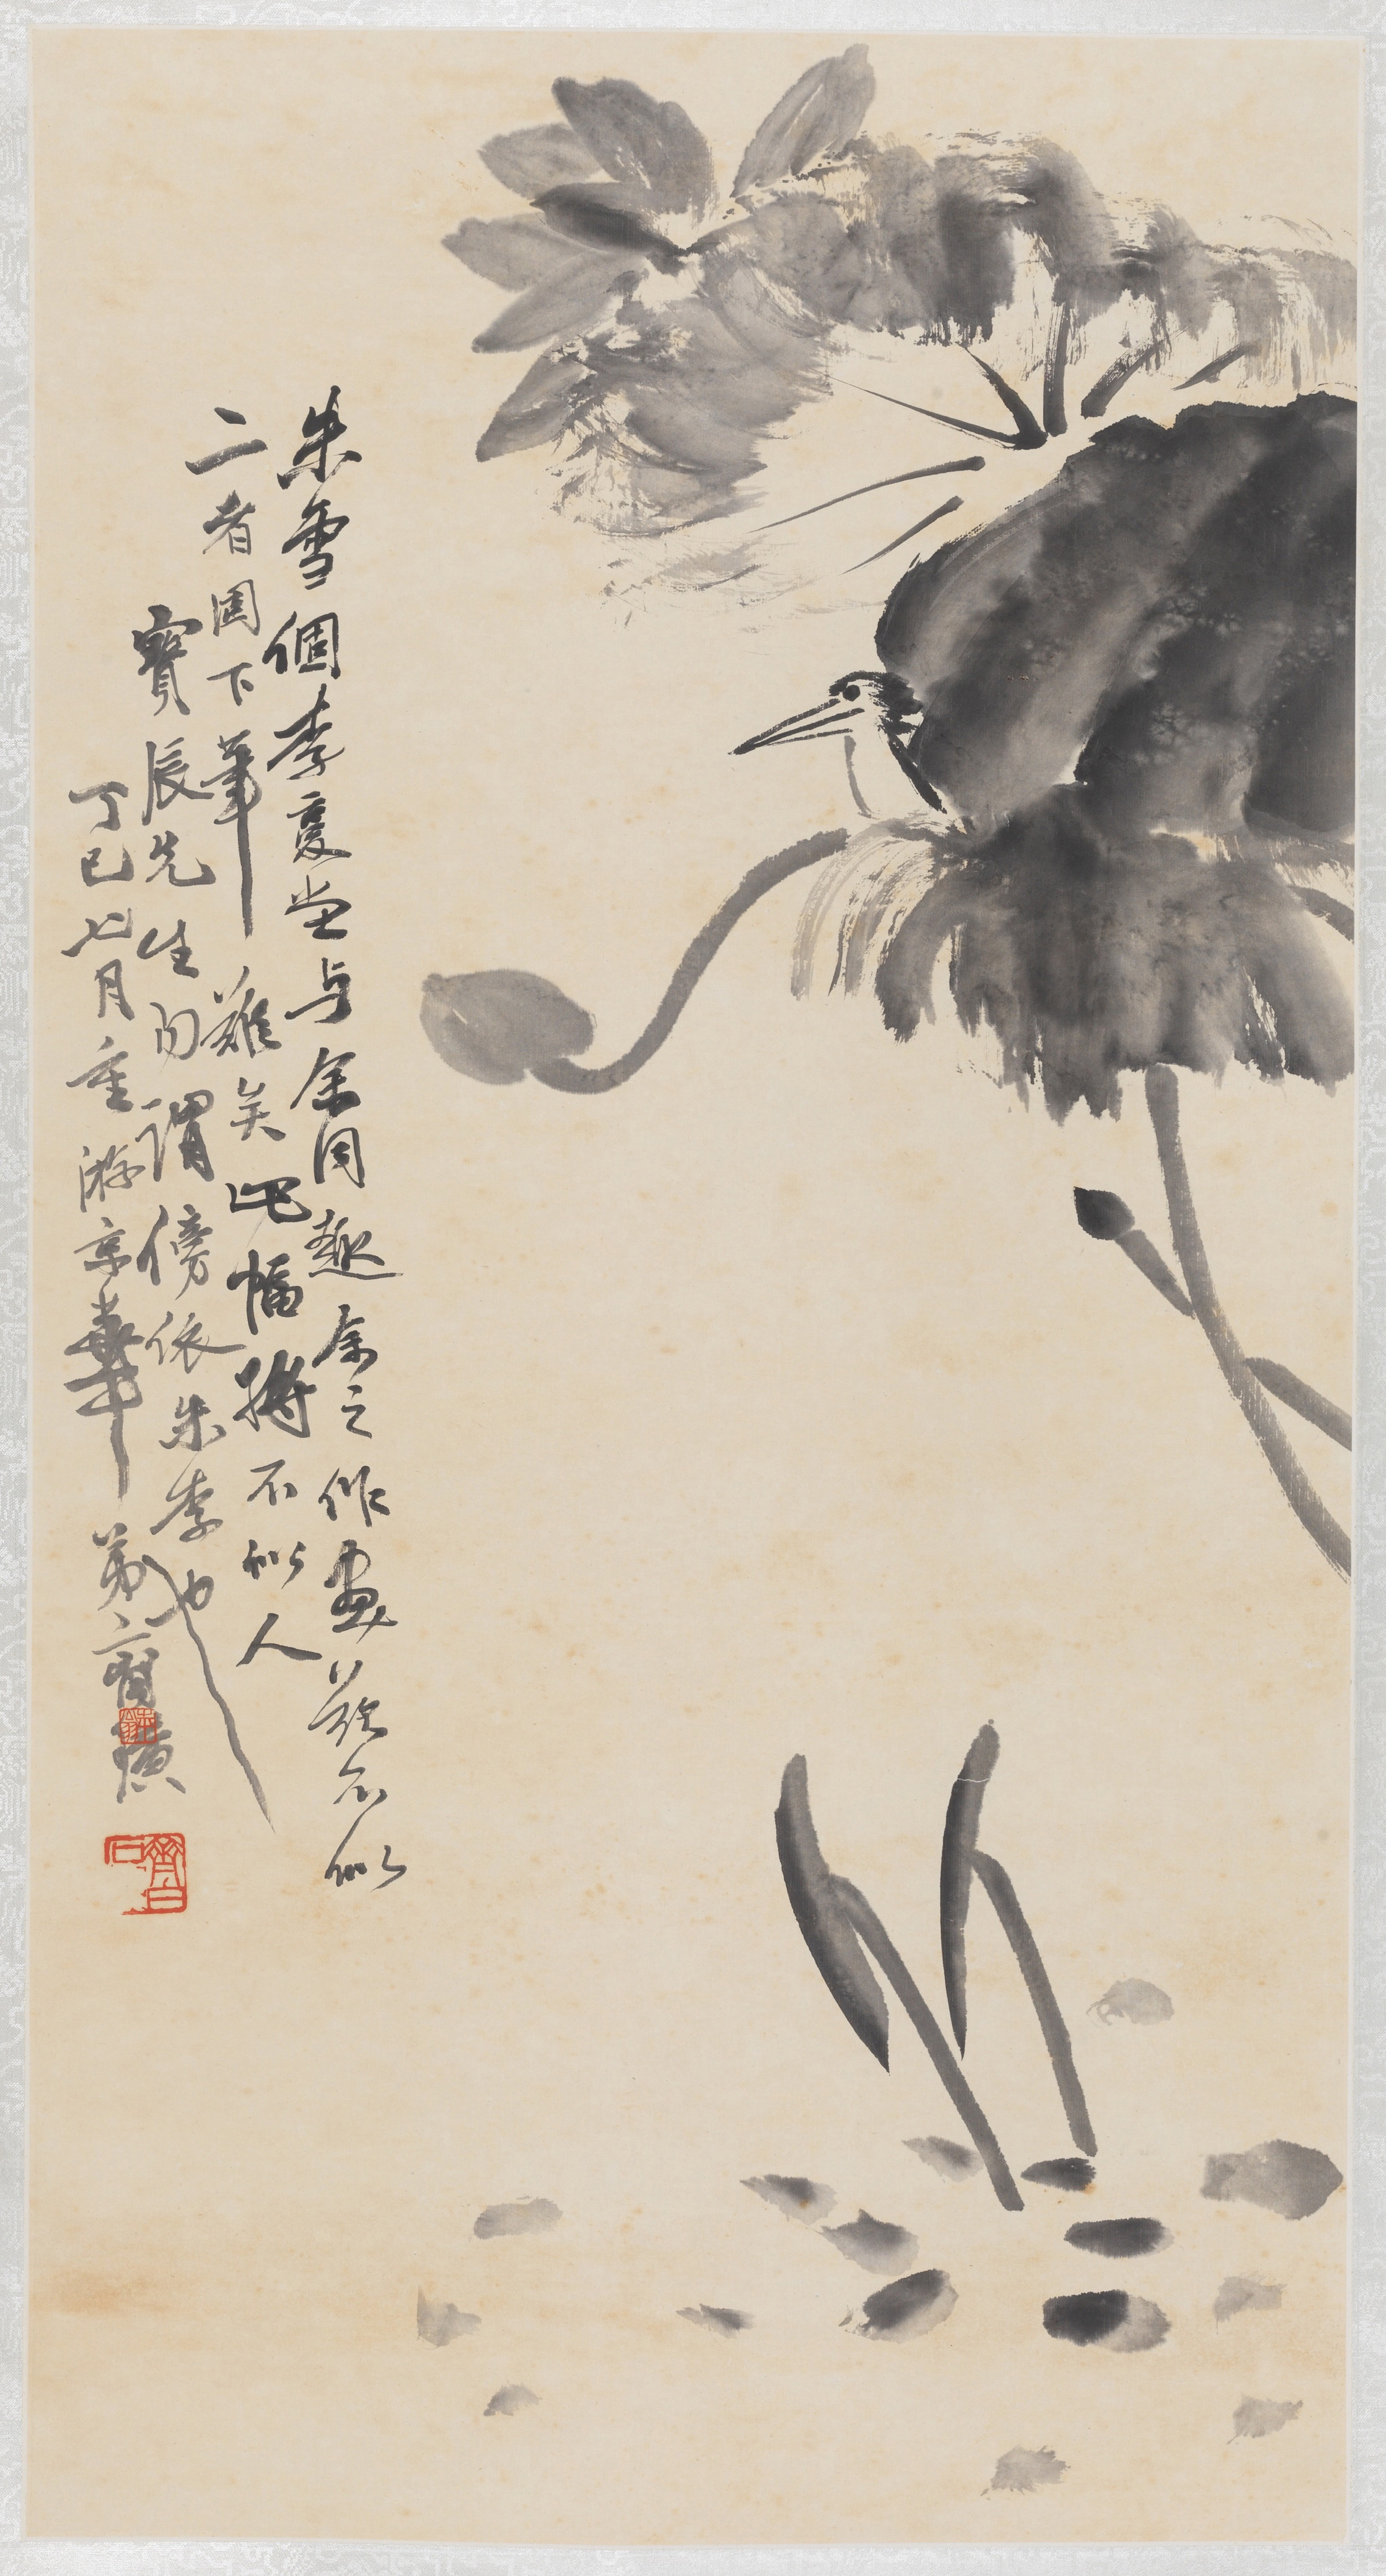 朱雪個李复堂与余同趣余之作畫茲不似
二者固下筆難矣此幅將不似人
寶辰先生勿謂傍依朱李也
丁巳七月重游京華弟齊璜
齊白石